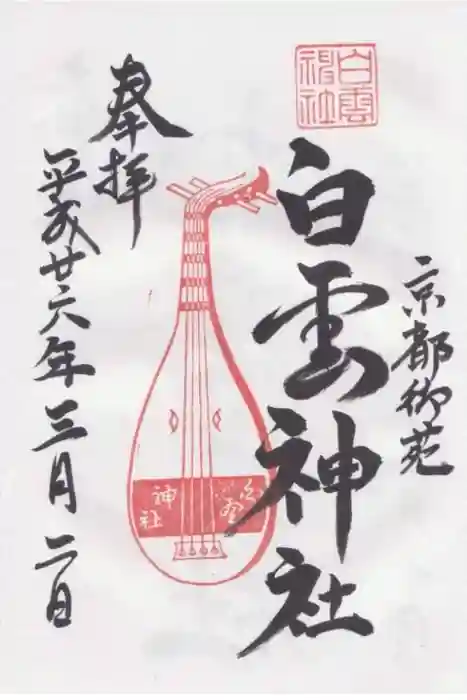 京都御苑
白雲
神社
白雲神社
奉拝
平成廿六年三月二日
白雲
神社